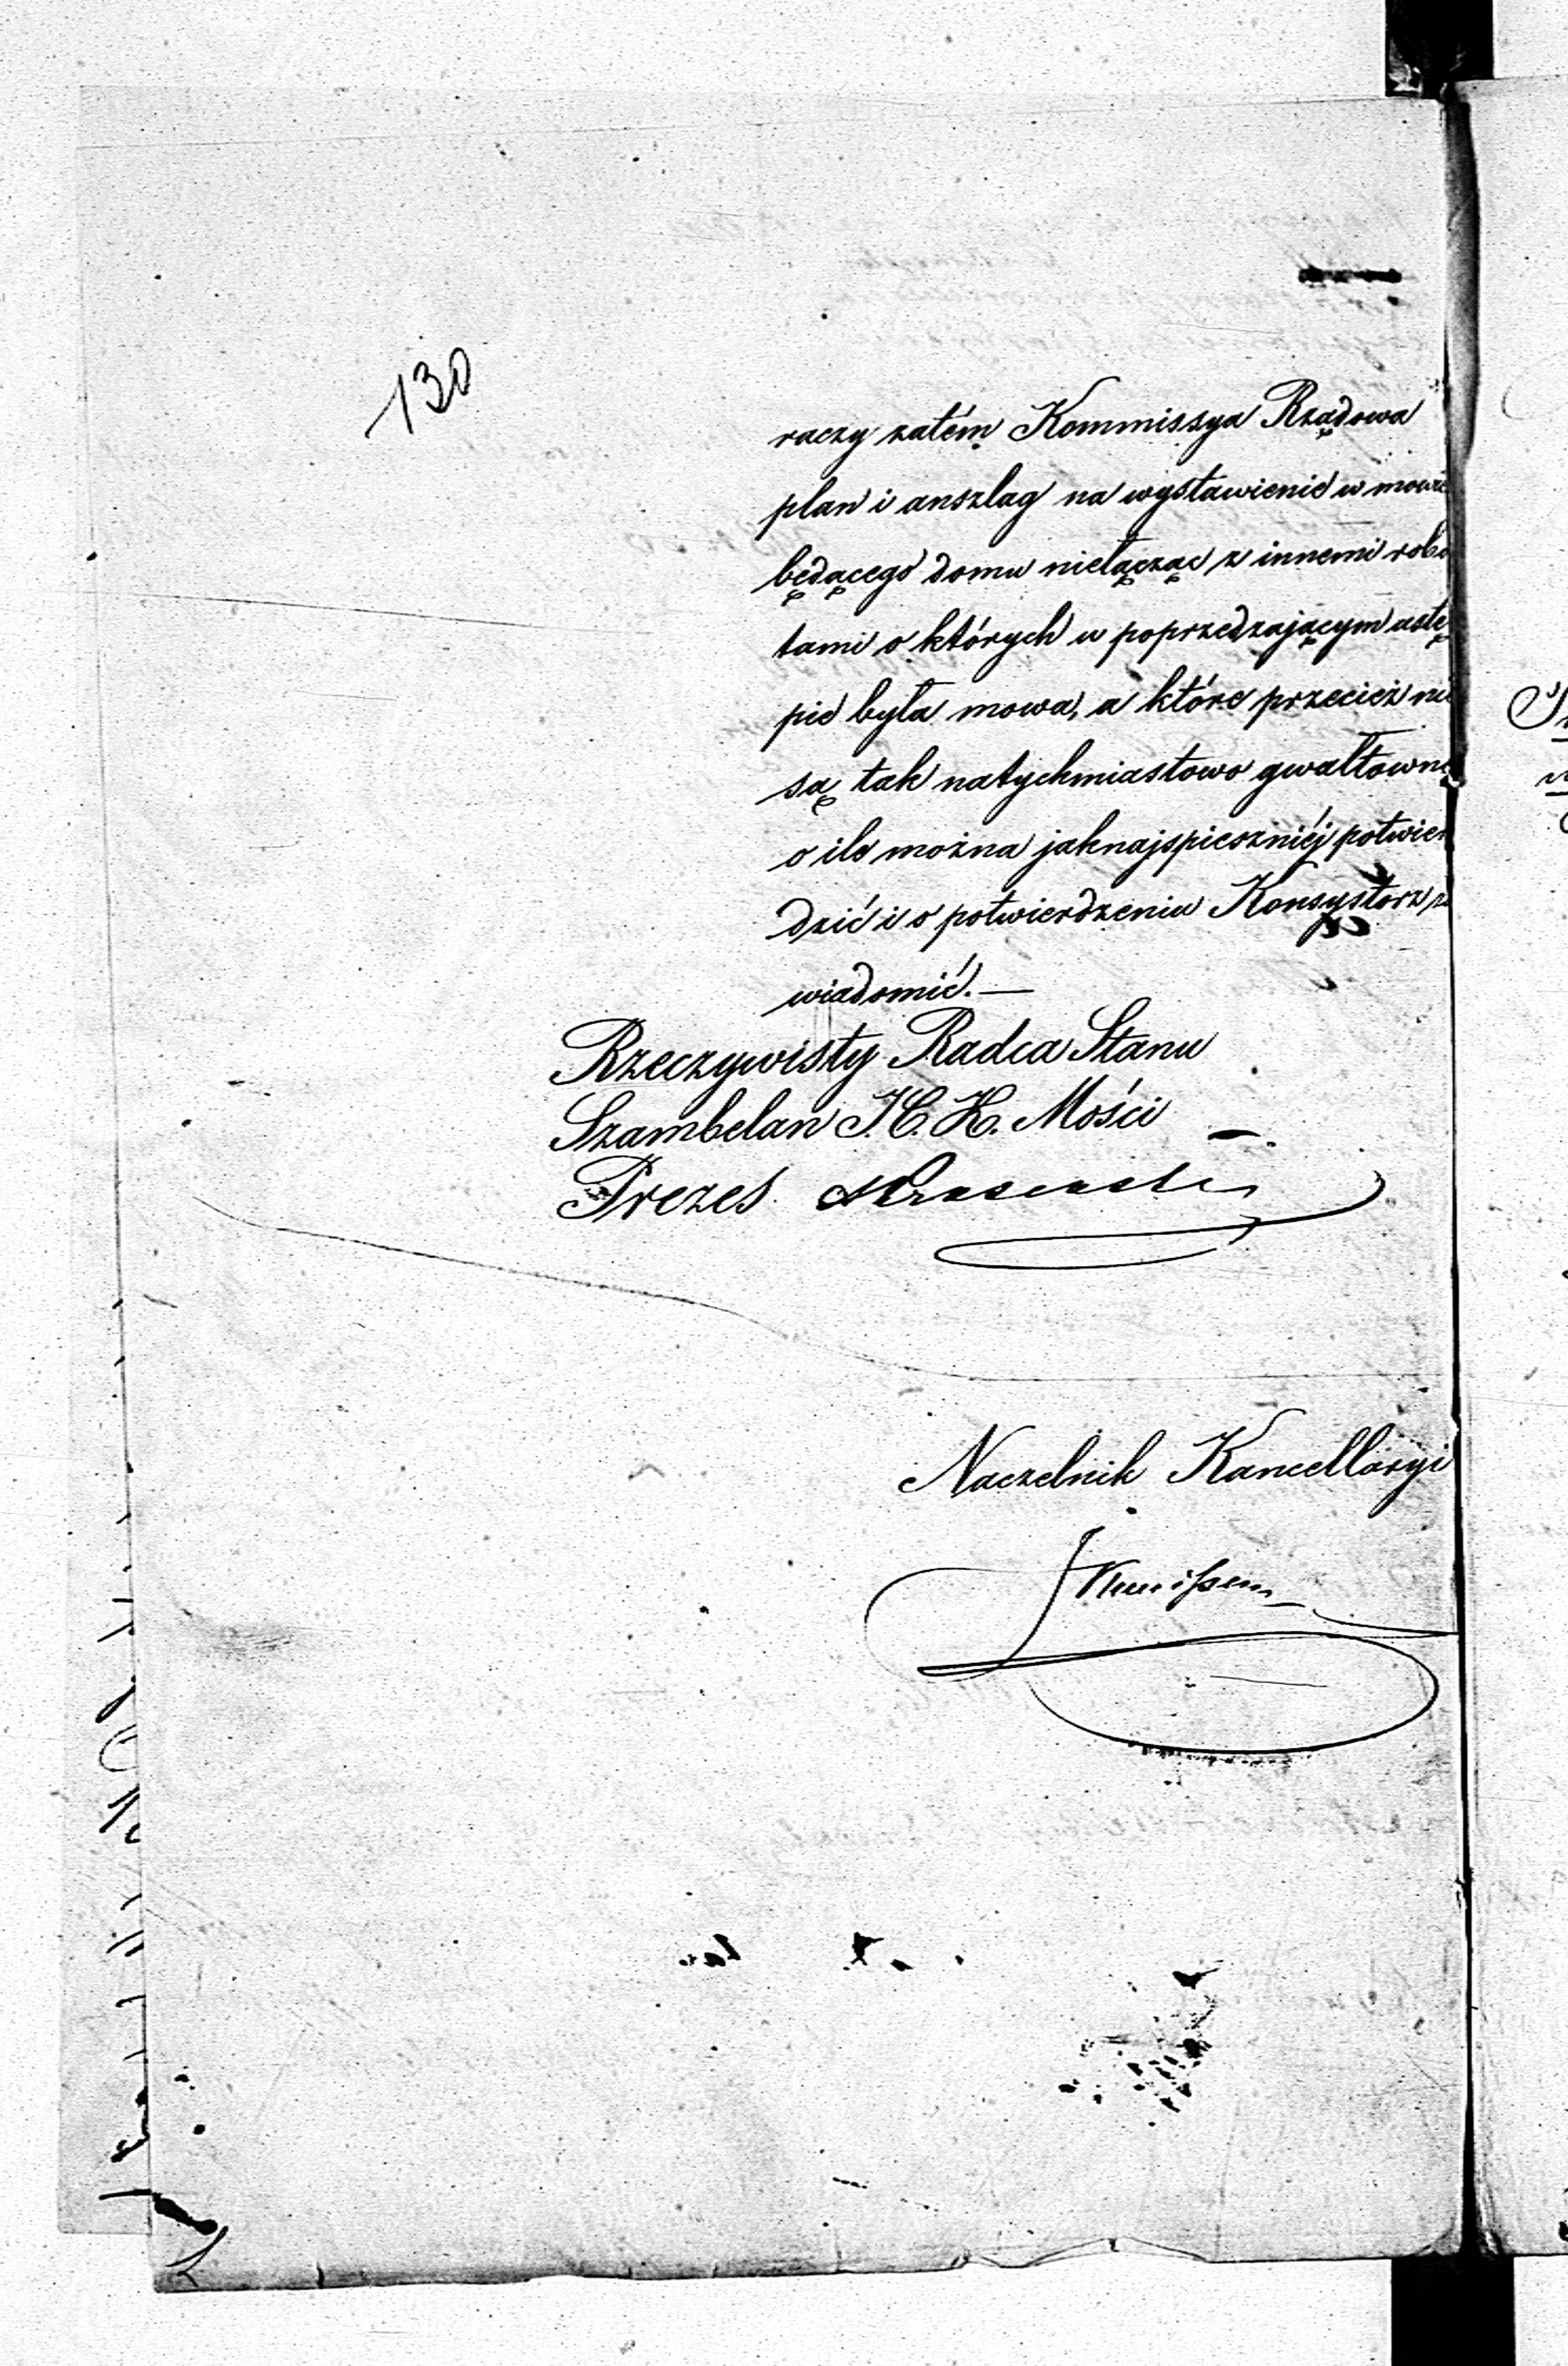 130
raczy zatém Kommissya Rządowa
plan i anszlag na wystawienie w mowie
będącego domu niełącząc z innemi robo
tami o których w poprzedzającym ustę
pie była mowa, a które przecież nie
są tak natychmiastowo gwałtowne
o ile można jaknajspieszniéj potwier
dzić i o potwierdzeniu Konsystorz
wiadomić.—
Rzeczywisty Radca Stanu
Szambelan J.C.K. Mości
Prezes
Naczelnik Kancellaryi